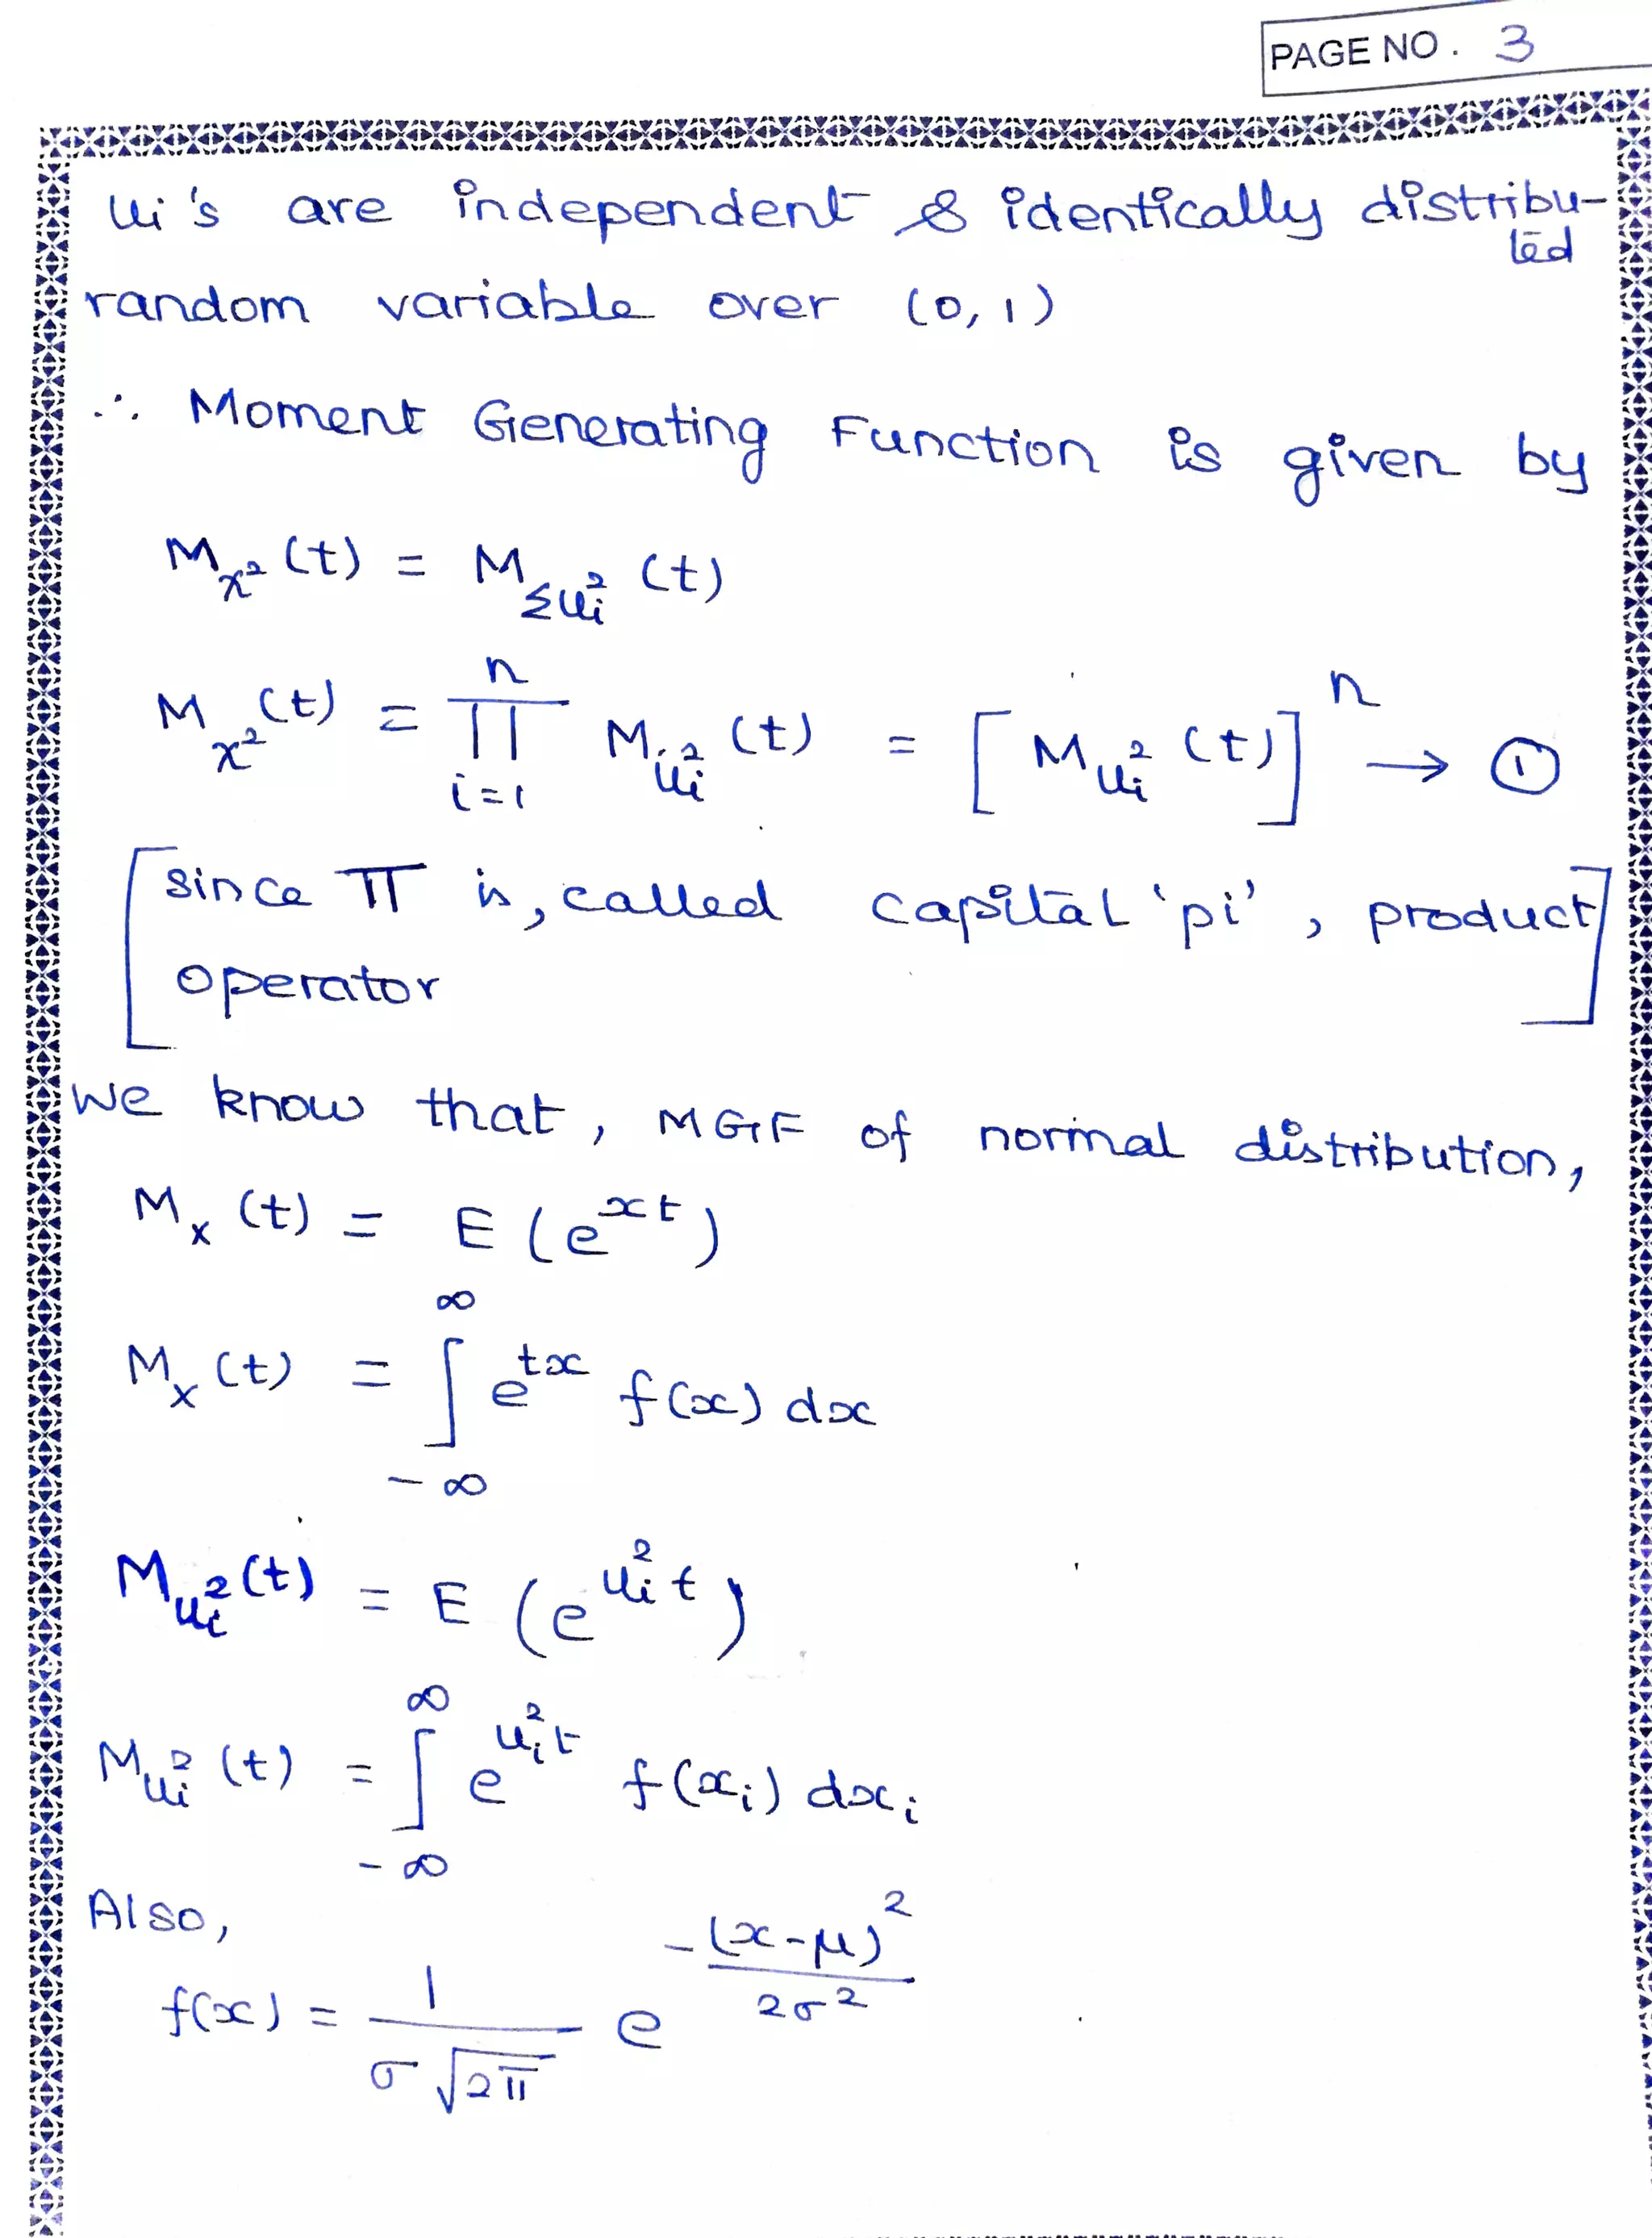 PAGE NO. 3
Ui's are independent & identically distribu-
ted
random variable over (0, 1)
∴ Moment Generating Function is given by
M_χ² (t) = M_Σui² (t)
M_χ² (t) = ∏_{i=1}^{n} M_ui² (t) = [M_ui² (t)]^n → ①
[since ∏ is, called capital 'pi', product
operator]
We know that, MGF of normal distribution,
M_x (t) = E (e^{xt})
M_x (t) = ∫_{-∞}^{∞} e^{tx} f(x) dx
M_ui² (t) = E (e^{ui² t})
M_ui² (t) = ∫_{-∞}^{∞} e^{ui² t} f(x_i) dx_i
Also,
f(x) = 1/(σ√2π) e^{-(x-μ)²/2σ²}